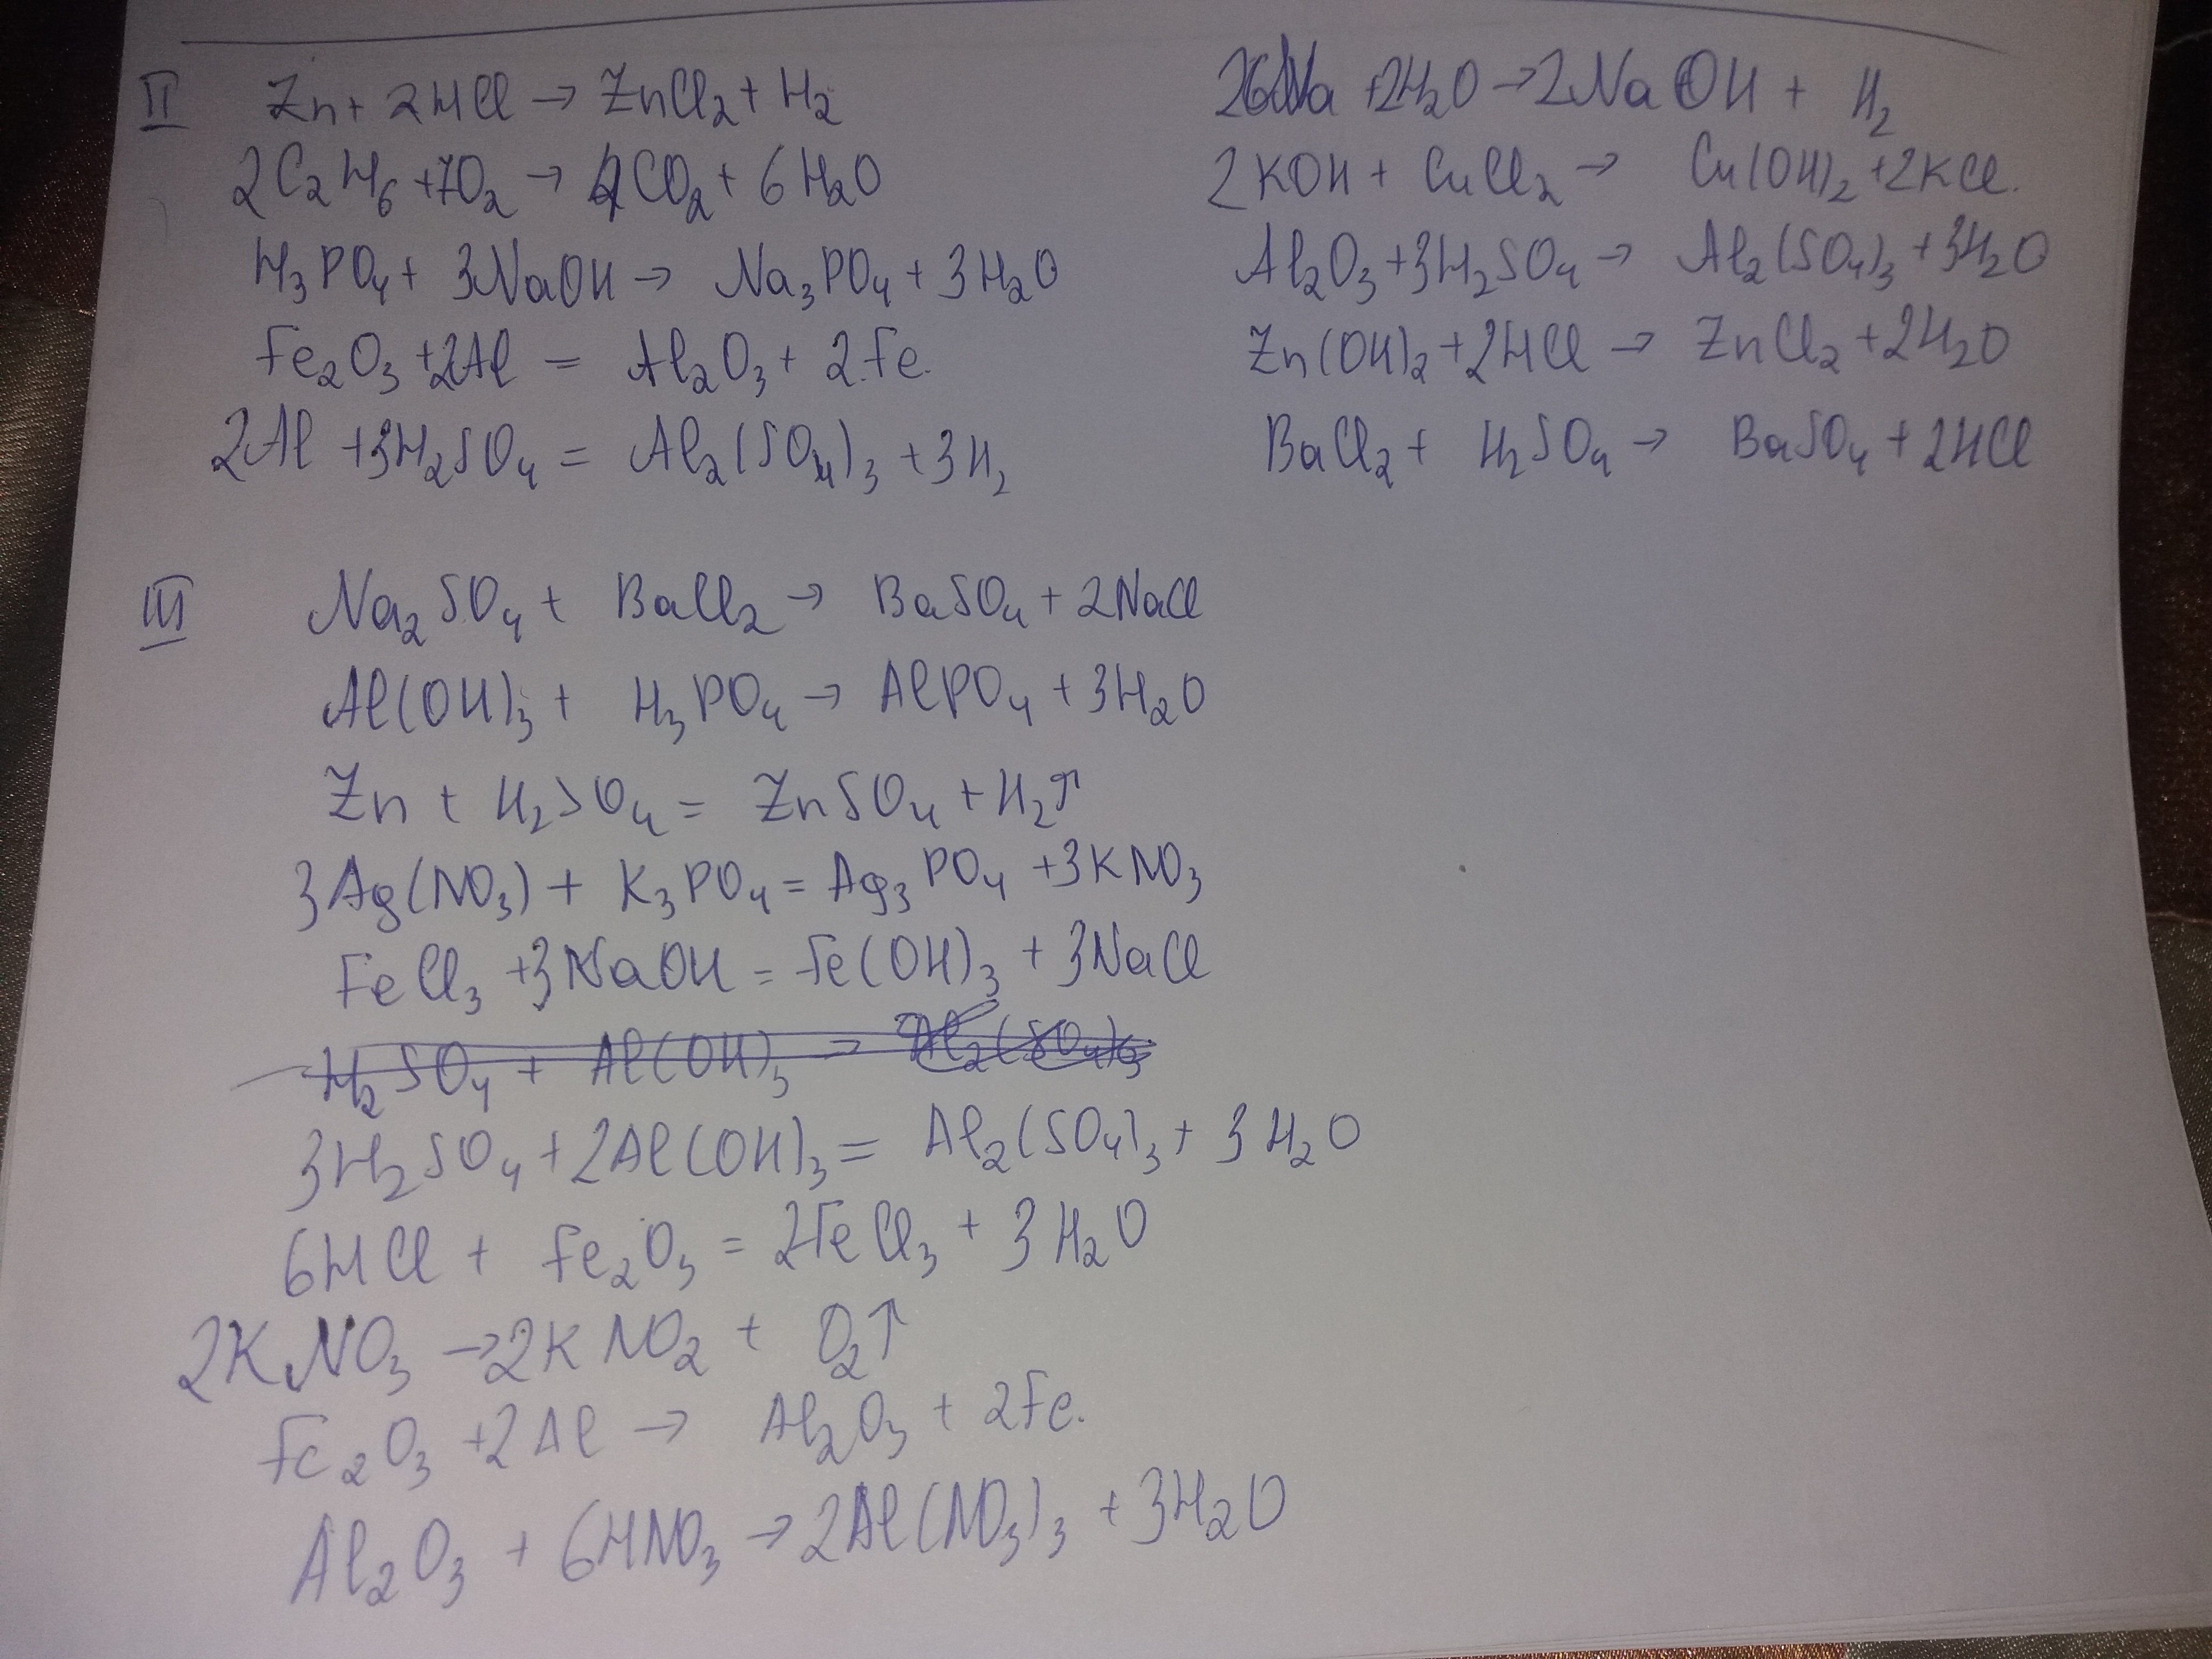 II Zn + 2HCl → ZnCl₂ + H₂
2C₂H₆ + 7O₂ → 4CO₂ + 6H₂O
H₃PO₄ + 3NaOH → Na₃PO₄ + 3H₂O
Fe₂O₃ + 2Al = Al₂O₃ + 2Fe.
2Al + 3H₂SO₄ = Al₂(SO₄)₃ + 3H₂
2Na + 2H₂O → 2NaOH + H₂
2KOH + CuCl₂ → Cu(OH)₂ + 2KCl.
Al₂O₃ + 3H₂SO₄ → Al₂(SO₄)₃ + 3H₂O
Zn(OH)₂ + 2HCl → ZnCl₂ + 2H₂O
BaCl₂ + H₂SO₄ → BaSO₄ + 2HCl
III Na₂SO₄ + BaCl₂ → BaSO₄ + 2NaCl
Al(OH)₃ + H₃PO₄ → AlPO₄ + 3H₂O
Zn + H₂SO₄ = ZnSO₄ + H₂↑
3Ag(NO₃) + K₃PO₄ = Ag₃PO₄ + 3KNO₃
FeCl₃ + 3NaOH = Fe(OH)₃ + 3NaCl
H₂SO₄ + Al(OH)₃ → Al₂(SO₄)₃
3H₂SO₄ + 2Al(OH)₃ = Al₂(SO₄)₃ + 3H₂O
6HCl + Fe₂O₃ = 2FeCl₃ + 3H₂O
2KNO₃ → 2KNO₂ + O₂↑
Fe₂O₃ + 2Al → Al₂O₃ + 2Fe.
Al₂O₃ + 6HNO₃ → 2Al(NO₃)₃ + 3H₂O